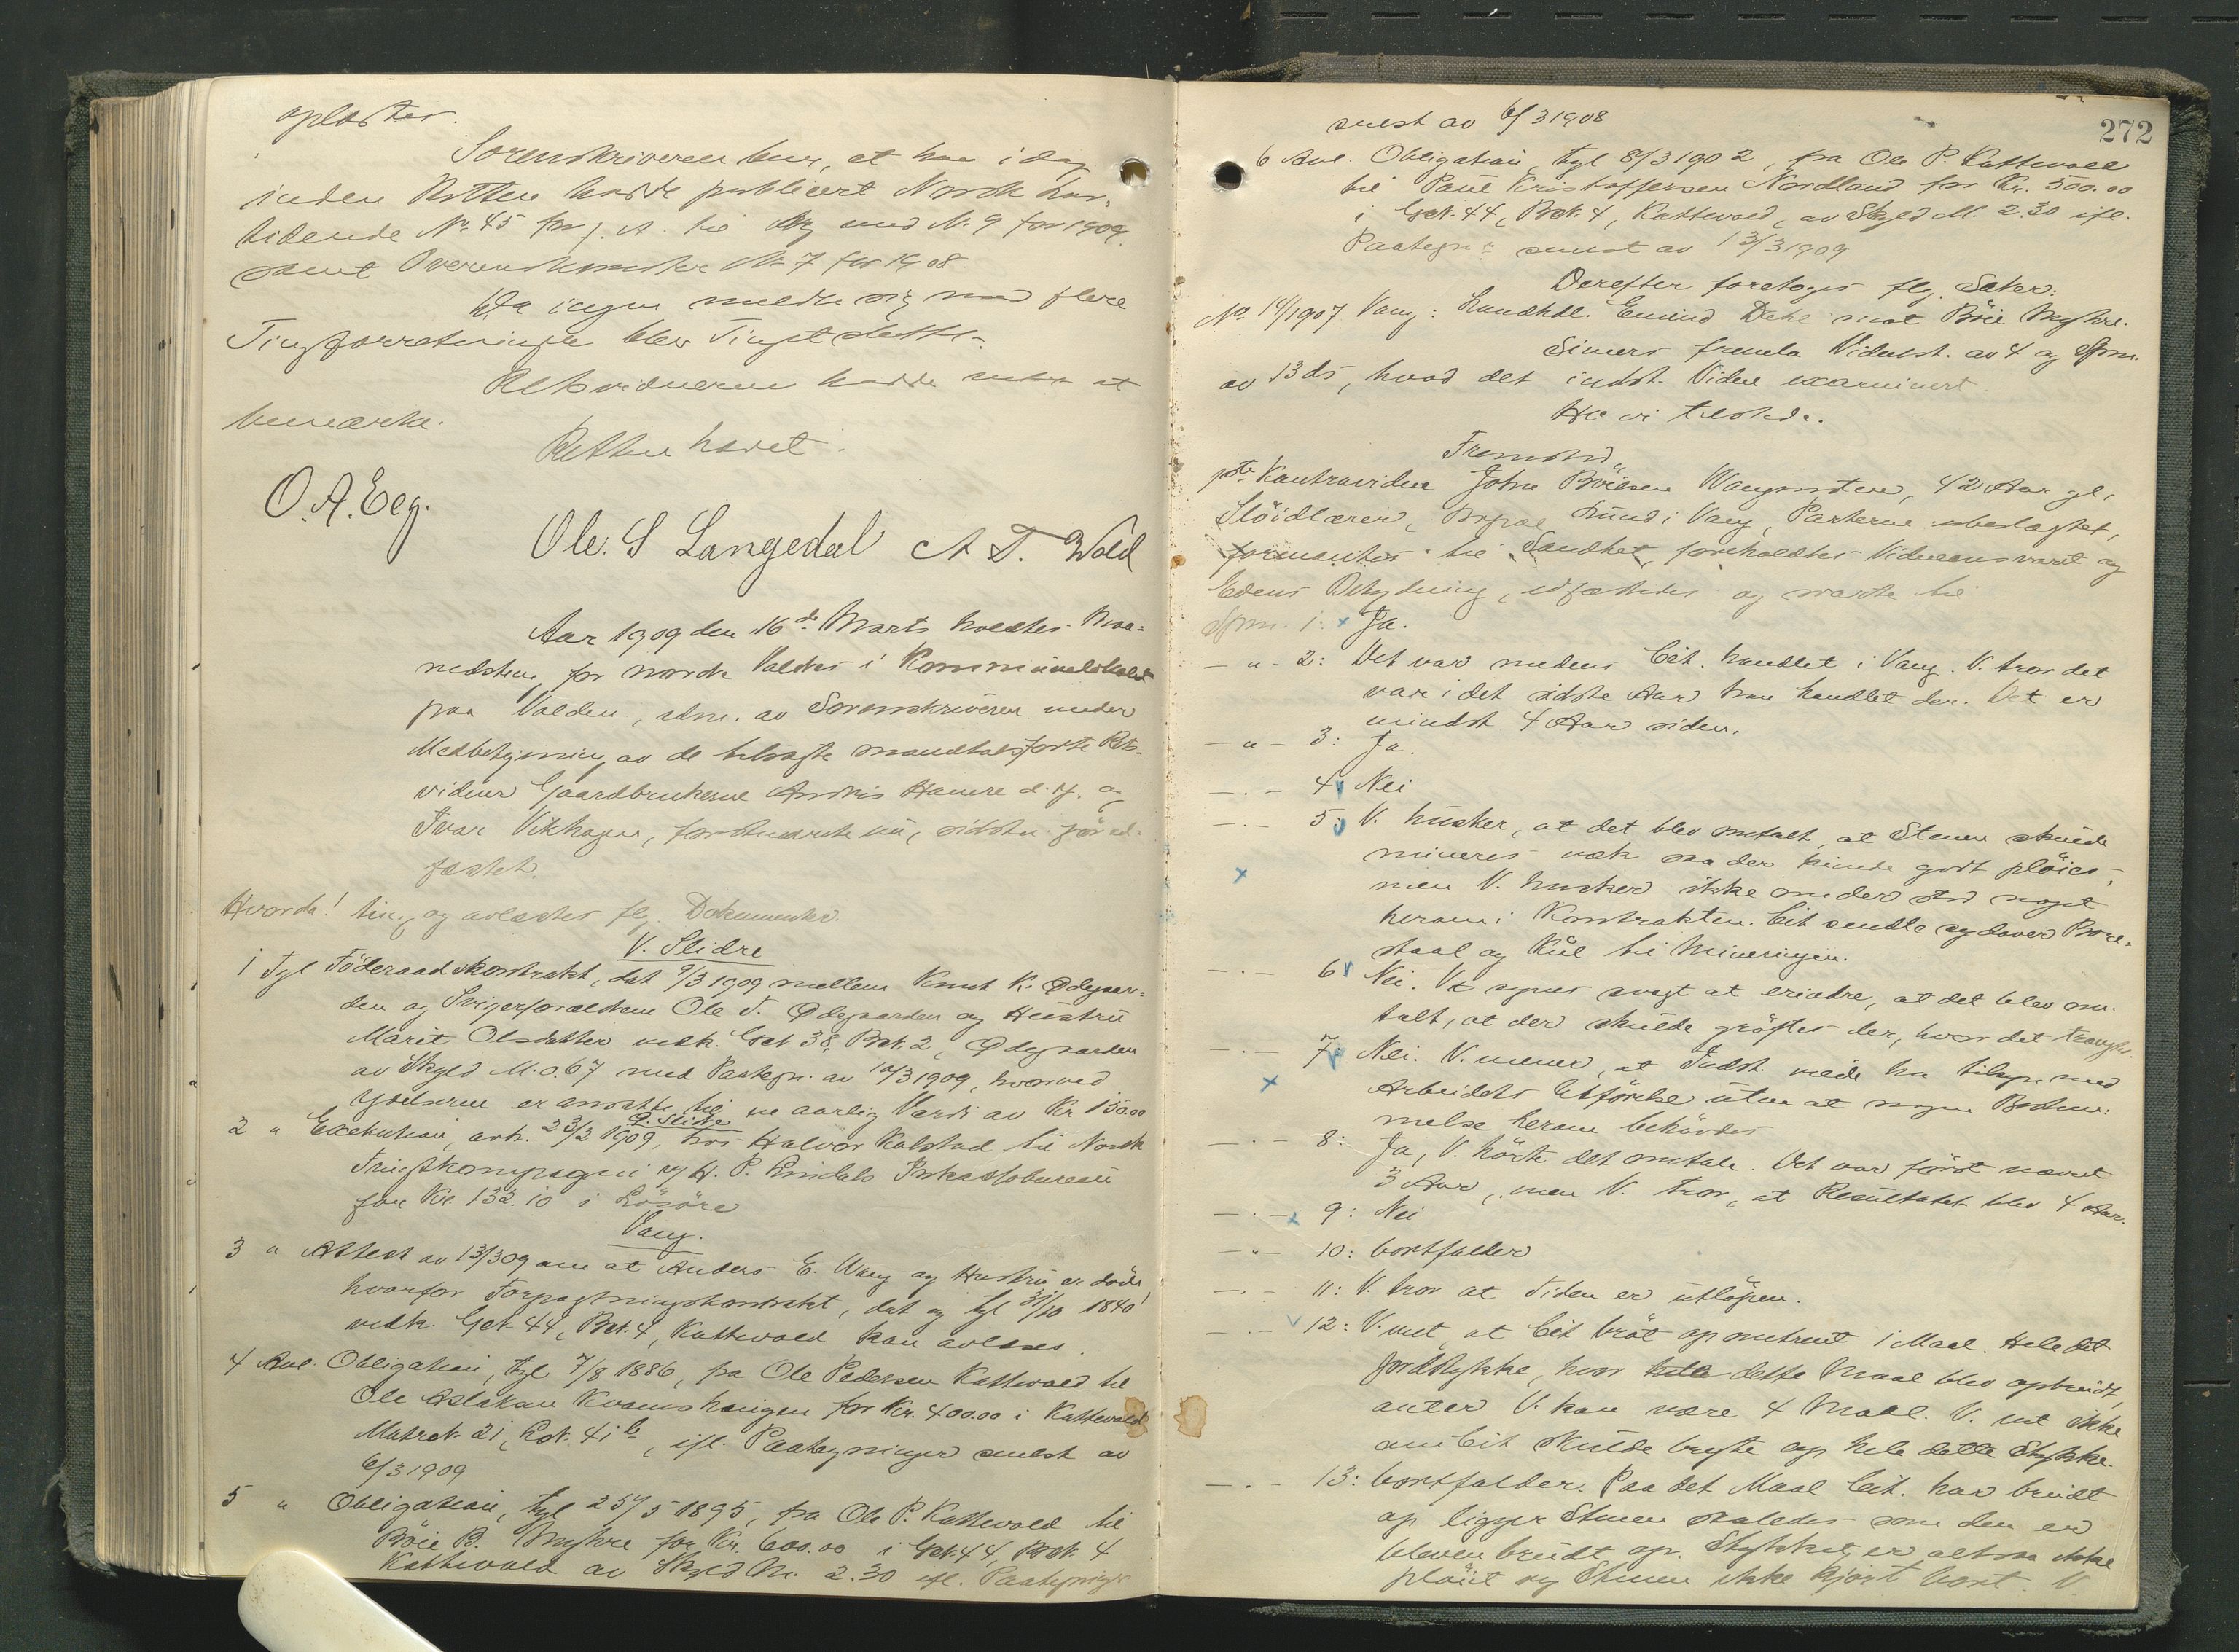 oplæstes.
Sorenskriveren bem, at han i dag
inden Retten havde publicert Norsk Lov-
tidende No 45 for f. A. til og med N. 9 for 1909
samt Overenskomster No 7 for 1908
Da ingen meldte sig med flere
Tingforretninger blev Tinget sluttet.
Retsvidnerne hadde intet at
bemærke.
Retten hævet.
O. A. Eeg.
Ole. S Langedal A T. Wold
Aar 1909 den 16de Marts holdtes Maa-
nedsting for nordre Valdres i Kommunelokalet
paa Volden, adm. av Sorenskriveren under
Medbetjening av de tilsagte mandtalsførte Rets-
vidner Gaardbrukerne Andris Hamre d. y. og
Ivar Vikhagen, førstnævnte nu, sidste før ed-
fæstet.
Hvorda! tingl. og avlæstes flg. Dokumenter.
V. Slidre
1 Tgl Föderaadskontrakt, dat 9/3 1909 mellem Knut K. Ødegaar-
den og Svigerforældrene Ole T. Ødegaarden og Hustru
Marit Olsdatter vedk. Gst. 38, Bst. 2, Ødegaarden
av Skyld M. 0.67 med Paategn. av 10/3 1909, hvorved
Ydelserne er ansatte til en aarlig Værdi av Kr 150.00
Ø. Slidre
2 " Exekution, avh. 23/2 1909, hos Halvor Kalstad til Norsk
kompagni v/ H. P. Lindals Inkassobureau
for Kr. 132.10 i Lösöre
Vang.
3 " Attest av 13/3 09 om at Anders E. Wang og Hustru er döde
hvorfor Forpagtningskontrakt, dat og tgl 31/10 1840
vedk. Gst. 44, Bst. 4, Kattevold kan avlæses.
4 Avl. Obligation, tgl 7/8 1886, fra Ole Pedersen Kattevold til
Ole Aslaksen Kvamshaugen for Kr. 400.00 i Kattevold
Matr.N. 21, L.N. 41b, ifl. Paategninger senest av
6/3 1909
5 " Obligation, tgl 25/5 1895, fra Ole P. Kattevold til
Böie B. Myhre for Kr. 600.00 i Gst. 44, Bst. 4
Kattevold av Skyld M. 2.30 ifl. Paategninger
272
senest av 6/3 1908
6 Avl. Obligation, tgl 8/3 1902, fra Ole P. Kattevold
til Paul Kristoffersen Nordland for Kr. 500.00
i Gst. 44, Bst. 4, Kattevold, av Skyld M. 2.30 ifl.
Paategn. senest av 13/3 1909
Derefter foretoges flg. Saker:
No 14/1907 Vang: Landhdl. Emind Dahl mot Böie Myhre.
Simers fremla Vidnest. av 4 og Spm.
av 13 ds, hvad det indst. Vidne examinert
Ha vi tilstede.
Fremstod
1ste Kontravidne John Böiesen Wangensteen, 42 Aar gl.
Slöidlærer, Bopæl Lund i Vang, Parterne ubeslægtet,
formantes til Sandhet, foreholdtes Vidneansvaret og
Edens Betydning, edfæstedes og svarte til
Spm. 1: x Ja.
— " — 2: Det var medens Cit. handlet i Vang. V. tror det
var i det sidste Aar han handlet der. Det er
mindst 4 Aar siden.
— " — 3: Ja.
— . — 4 Nei
— . — 5: V. husker, at det blev omtalt, at Stenen skulde
mineres væk saa der kunde godt plöies,
x men V. husker ikke om der stod noget
herom i Kontrakten. Cit sendte ogsaa over Bore-
staal og Kul til Mineringen.
— . — 6 Nei. V. synes svagt at erindre, at det blev om-
talt, at der skulde gröftes der, hvor det trængtes.
— . — 7: Nei. V. mener, at Indst. vilde ha tilsyn med
x Arbeidets Utförelse uten at nogen Bestem-
melse herom behövdes
— . — 8: Ja, V. hörte det omtale. Det var först nævnt
3 Aar, men V. tror, at Resultatet blev 4 Aar.
— . — x 9: Nei
— " — 10: bortfalder
— . — 11: V. tror at Tiden er utlöpen.
— . — 12: V. vet at Cit bröt op omtrent 1 Maal. Hele det
Jordstykke, hvor dette Maal blev opbrudt,
antar V. kan være 4 Maal. V. vet ikke
om Cit skulde bryte op hele dette Stykke.
— . — 13: bortfalder. Paa det Maal Cit. har brudt
op ligger Stenen saaledes som den er
bleven brudt op. Stykket er altsaa ikke
plöiet og Stenen ikke kjört bort. V.